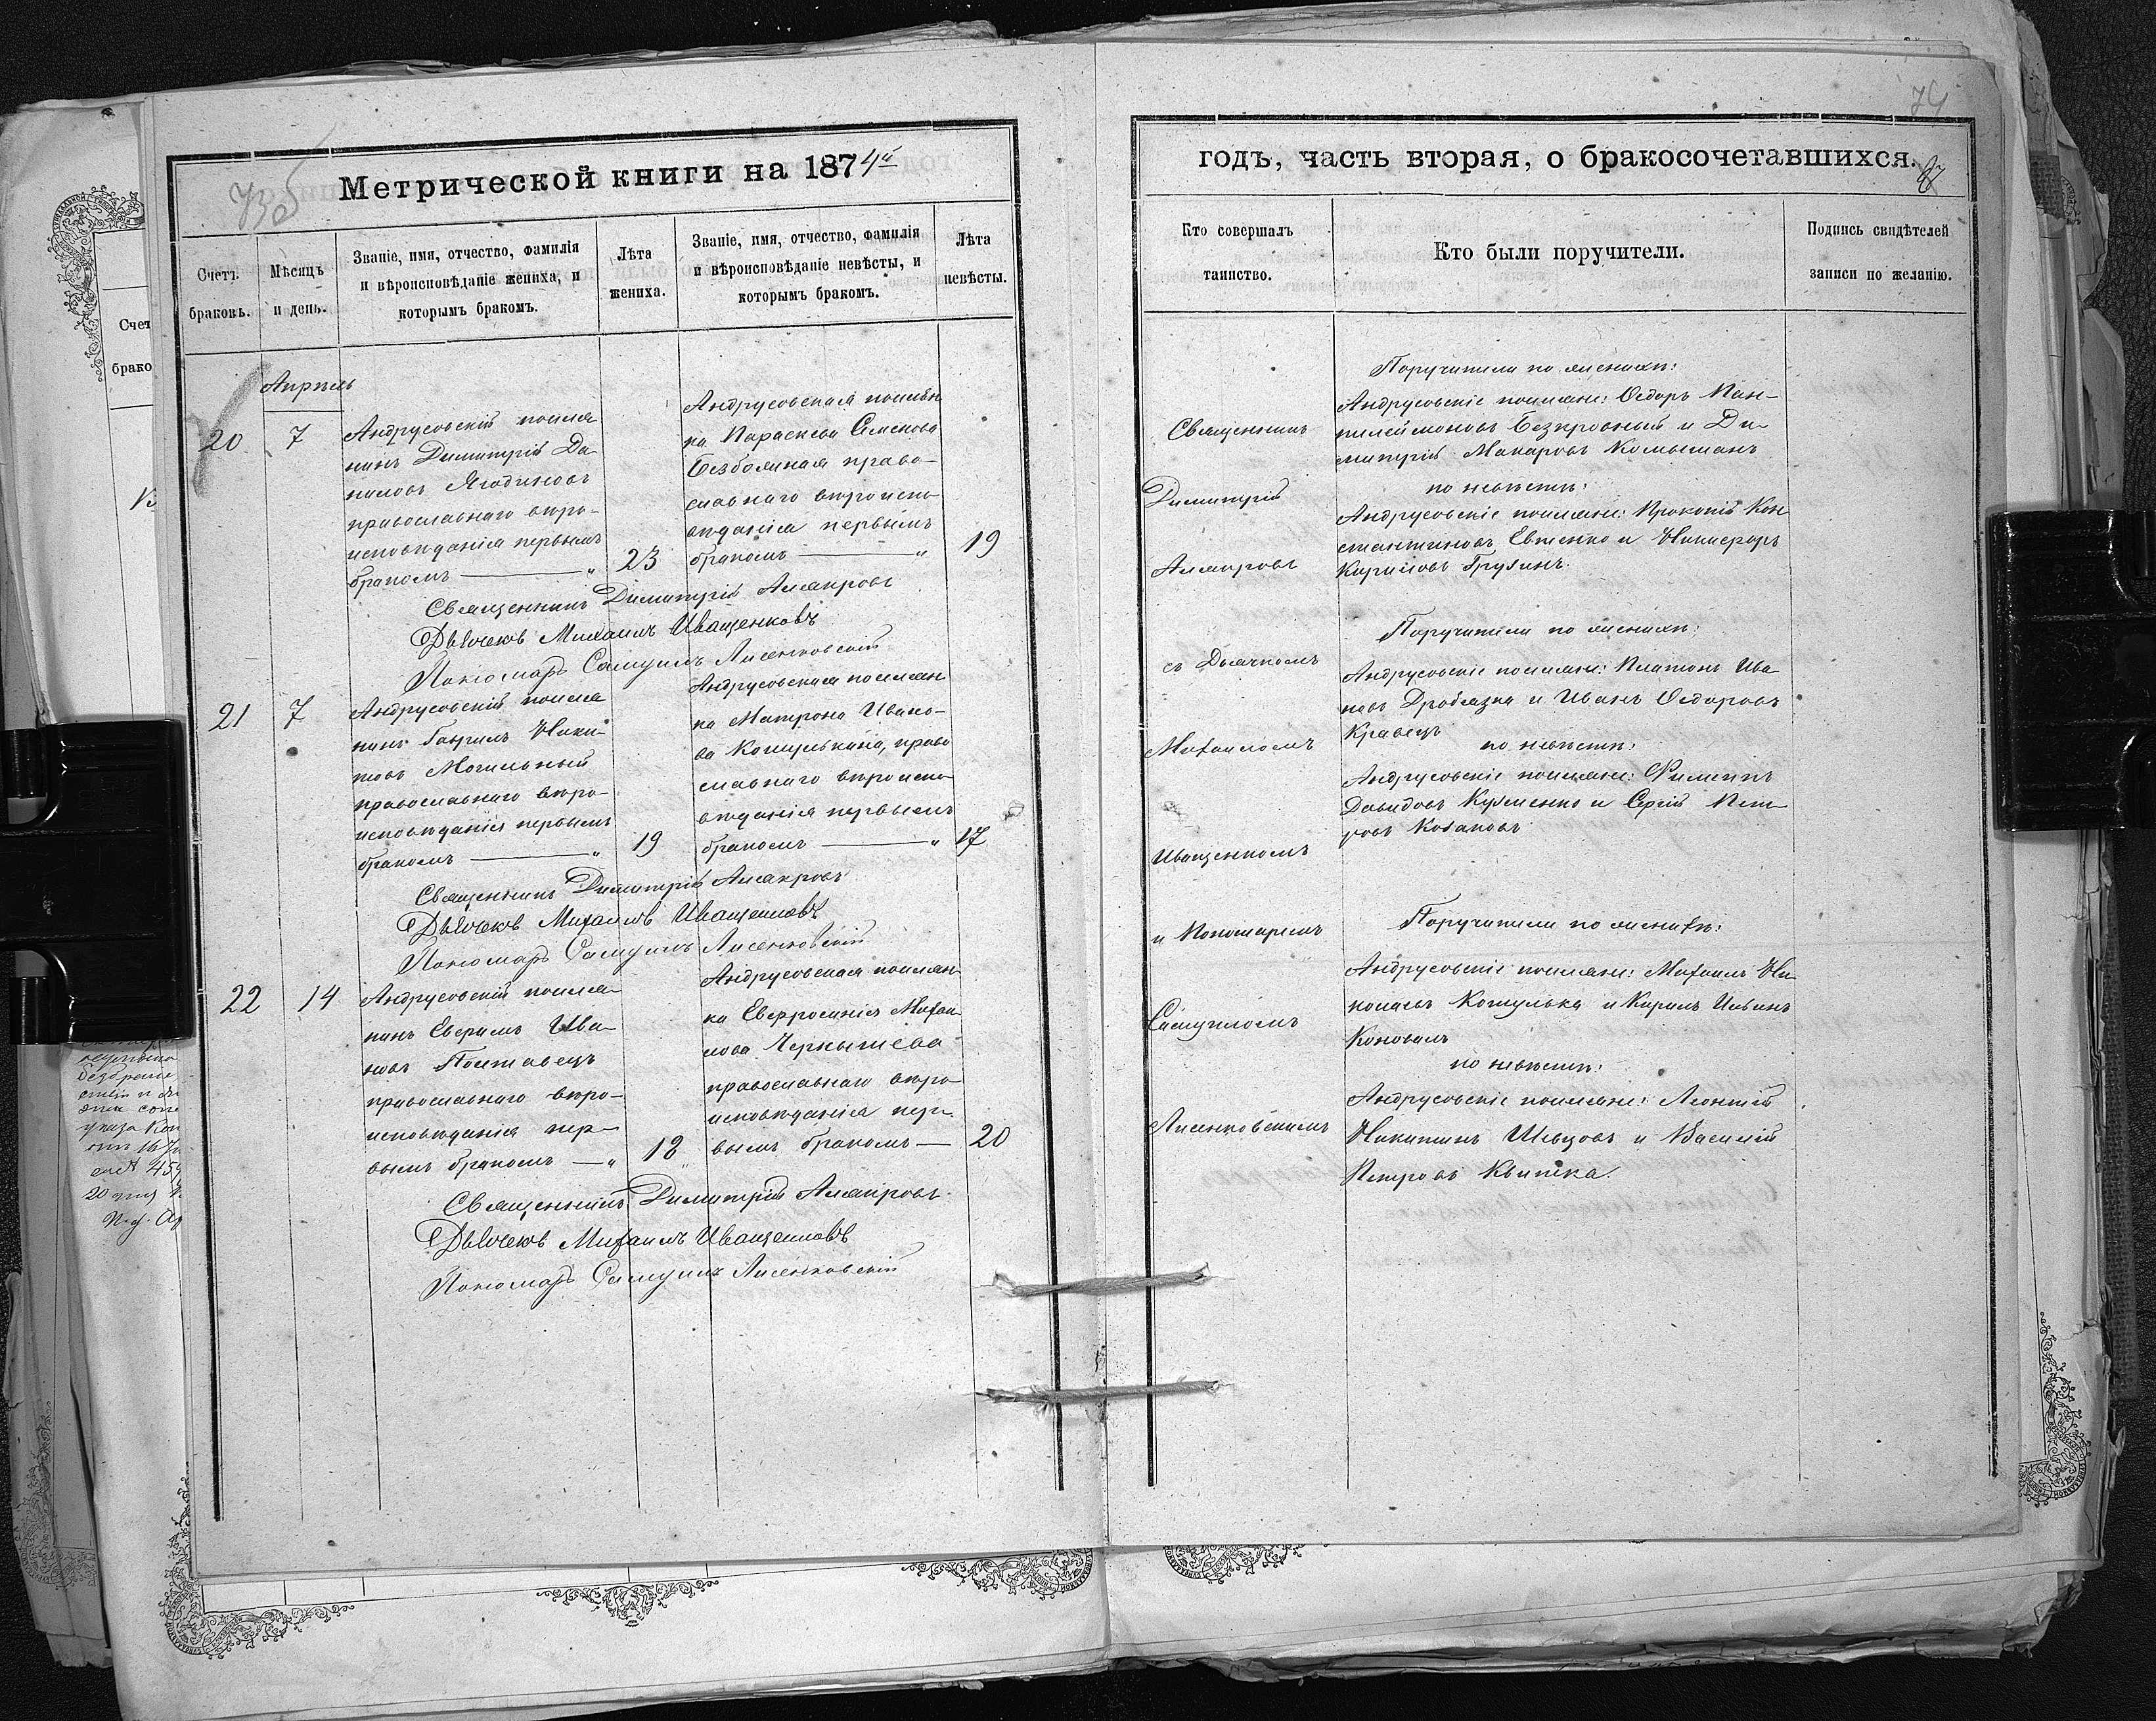 73 об
Метрической книги на 1874й
Счетъ браковъ.
Мѣсяцъ и день.
Званіе, имя, отчество, фамилія и вѣроисповѣданіе жениха, и которымъ бракомъ.
Лѣта жениха.
Званіе, имя, отчество, фамилія и вѣроисповѣданіе невѣсты, и которымъ бракомъ.
Лѣта невѣсты.
Апрѣль
20
7
Андрусовскій поселя-
нинъ Димитрій Да-
ниловъ Ягодиновъ
православнаго вѣро-
исповѣданія первымъ
бракомъ — „
23
Андрусовская поселян-
ка Параскева Семенова
Безбожная право-
славнаго вѣроиспо-
вѣданія первымъ
бракомъ — „
19
Священникъ Димитрій
Дьячекъ Михаилъ Иващенковъ
Пономарь Самуилъ Лисенковскій
21
7
Андрусовскій поселя-
нинъ Гавриилъ Ники-
товъ Могильный
православнаго вѣро-
исповѣданія первымъ
бракомъ — „
19
Андрусовская поселян-
ка Матрона Ивано-
ва Кошулькина, право
славнаго вѣроиспо-
вѣданія первымъ
бракомъ — „
17
Священникъ Димитрій
Дьячекъ Михаилъ Иващенковъ
Пономарь Самуилъ Лисенковскій
22
14
Андрусовскій поселя-
нинъ Ива-
новъ Полтавецъ
православнаго вѣро-
исповѣданія пер-
вымъ бракомъ — „
18
Андрусовская поселян-
ка Евфросинія Михаи-
лова Чернышева
православнаго вѣро-
исповѣданія пер-
вымъ бракомъ —
20
Священникъ Димитрій
Дьячекъ Михаилъ Иващенковъ
Пономарь Самуилъ Лисенковскій
74
годъ, часть вторая, о бракосочетавшихся.
Кто совершалъ таинство.
Кто были поручители.
Подпись свидѣтелей записи по желанію.
Священникъ
Димитрій
съ Дьячкомъ
Михаиломъ
Иващенкомъ
и Пономаремъ
Самуиломъ
Лисенковскимъ
Поручители по женихѣ:
Андрусовскіе поселяне: Ѳедоръ Пан-
телеймоновъ Безкровный и Ди-
митрій Макаровъ
по невѣстѣ:
Андрусовскіе поселяне: Прокопій Кон
стантиновъ Евтенко и Никифоръ
Кириловъ Грузинъ.
Поручители по женихѣ:
Андрусовскіе поселяне: Платонъ Ива
новъ Дробязка и Иванъ Ѳедоровъ
Кравецъ
по невѣстѣ:
Андрусовскіе поселяне: Филиппъ
Давидовъ Кузменко и Сергій Пет-
ровъ Козаковъ
Поручители по женихѣ:
Андрусовскіе поселяне: Михаилъ Ни
колаевъ Кошулька и Кирилъ Ильинъ
Коновалъ
по невѣстѣ:
Андрусовскіе поселяне: Леонтій
Никитинъ Шевцовъ и Василій
Петровъ Квитка.
Счет
брако